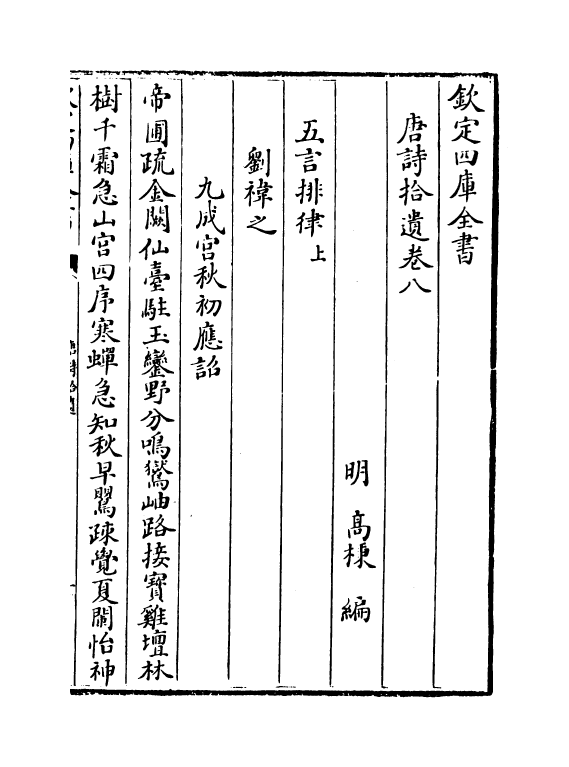 欽定四庫全書
唐詩拾遺卷八
明 髙棅 編
五言排律上
劉禕之
九成宫秋初應詔
帝圃疏金闕仙臺駐玉鑾野分鳴鷟岫路接寶雞壇林
樹千霜急山宫四序寒蟬急知秋早鸎疎覺夏闌怡神